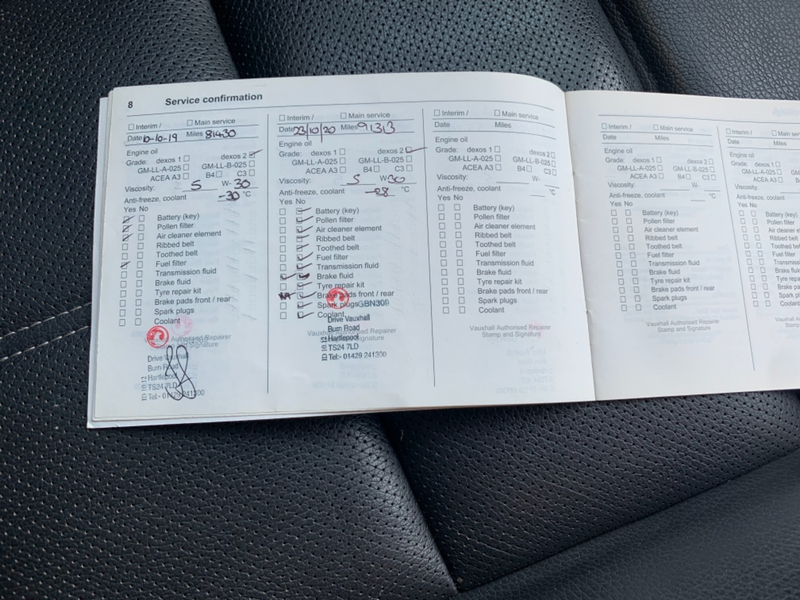 8 Service confirmation
Interim / Main service
Date 10-10-19 Miles 81430
Engine oil
Grade: dexos 1 dexos 2
GM-LL-A-025 GM-LL-B-025
ACEA A3 B4 C3
Viscosity: 5 W- 30
Anti-freeze, coolant -30 °C
Yes No
Battery (key)
Pollen filter
Air cleaner element
Ribbed belt
Toothed belt
Fuel filter
Transmission fluid
Brake fluid
Tyre repair kit
Brake pads front / rear
Spark plugs
Coolant
Authorised Repairer
and Signature
Drive Vauxhall
Burn Road
Hartlepool
TS24 7LD
Tel:- 01429 241300
Interim / Main service
Date 23/10/20 Miles 91313
Engine oil
Grade: dexos 1 dexos 2
GM-LL-A-025 GM-LL-B-025
ACEA A3 B4 C3
Viscosity: 5 W- 30
Anti-freeze, coolant -28 °C
Yes No
Battery (key)
Pollen filter
Air cleaner element
Ribbed belt
Toothed belt
Fuel filter
Transmission fluid
Brake fluid
Tyre repair kit
NA Brake pads front / rear
Spark plugs GBN300
Coolant
Vauxhall Authorised Repairer
Stamp and Signature
Drive Vauxhall
Burn Road
Hartlepool
TS24 7LD
Tel:- 01429 241300
Interim / Main service
Date Miles
Engine oil
Grade: dexos 1 dexos 2
GM-LL-A-025 GM-LL-B-025
ACEA A3 B4 C3
Viscosity: W-
Anti-freeze, coolant °C
Yes No
Battery (key)
Pollen filter
Air cleaner element
Ribbed belt
Toothed belt
Fuel filter
Transmission fluid
Brake fluid
Tyre repair kit
Brake pads front / rear
Spark plugs
Coolant
Vauxhall Authorised Repairer
Stamp and Signature
Interim / Main service
Date Miles
Engine oil
Grade: dexos 1 dexos 2
GM-LL-A-025 GM-LL-B-025
ACEA A3 B4 C3
Viscosity: W-
Anti-freeze, coolant °C
Yes No
Battery (key)
Pollen filter
Air cleaner element
Ribbed belt
Toothed belt
Fuel filter
Transmission fluid
Brake fluid
Tyre repair kit
Brake pads front / rear
Spark plugs
Coolant
Vauxhall Authorised Repairer
Stamp and Signature
Interim /
Date
Engine oil
Grade: dexos 1
GM-LL-A-025
ACEA A3
Viscosity:
Anti-freeze, coolant
Yes No
Battery (key)
Pollen filter
Air cleaner element
Ribbed belt
Toothed belt
Fuel filter
Transmission fluid
Brake fluid
Tyre repair kit
Brake pads front
Spark plugs
Coolant
Vauxhall